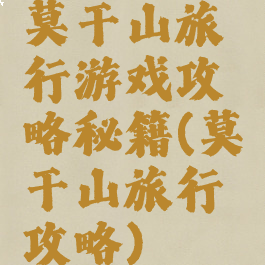 莫干山旅
行游戏攻
略秘籍(莫
干山旅行
攻略)